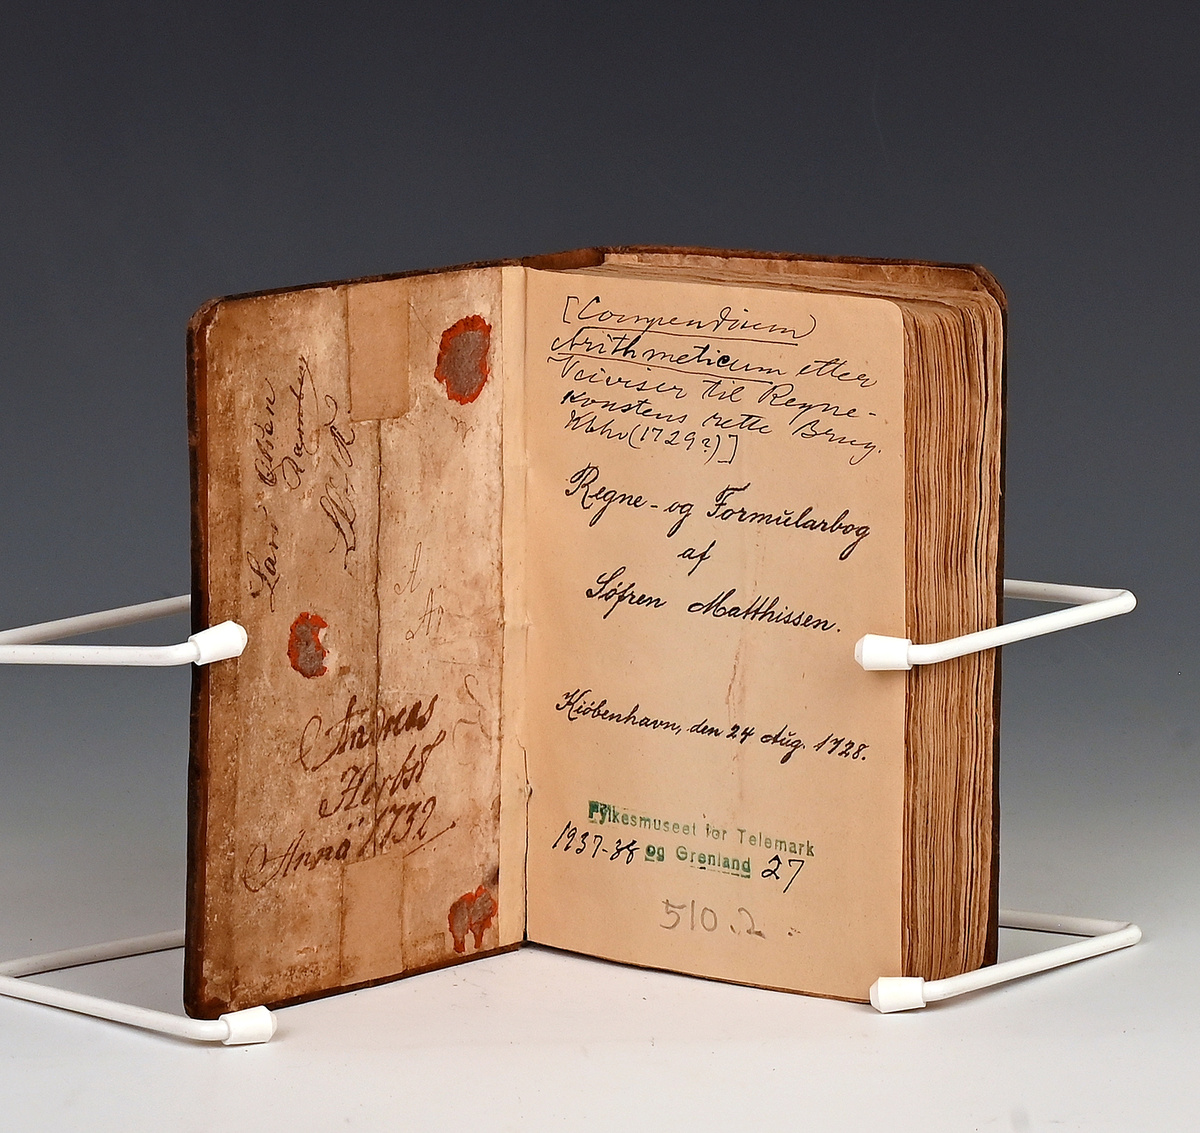 Lars Olsen
Ramberg
Andreas
Herbst
Anno 1732
[Compendium
Arithmeticum eller
Veiviser til Regne-
konstens rette Brug.
Kbhv (1729?)]
Regne- og Formularbog
af
Søfren Matthissen.
Kiöbenhavn, den 24 Aug. 1728.
Fylkesmuseet for Telemark
1937-38 og Grenland 27
510.2